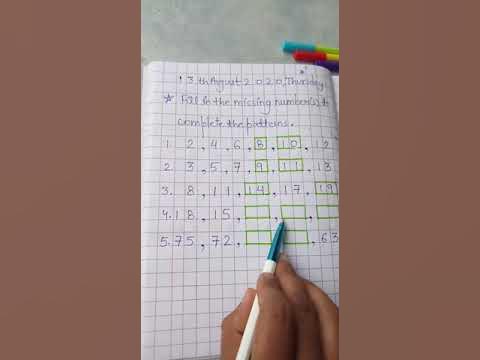 13th August 2020, Thursday
☆ Fill in the missing number(s) to
complete the patterns.
1. 2, 4, 6, 8, 10, 12
2. 3, 5, 7, 9, 11, 13
3. 8, 11, 14, 17, 19
4. 18, 15, , ,
5. 75, 72, , 63